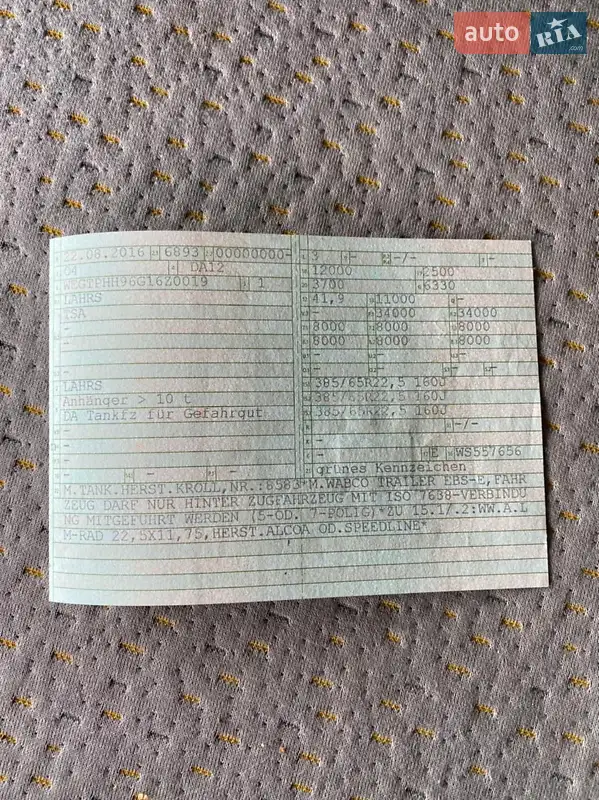 auto RIA .com
22.08.2016 6893 00000000- 3 - -/- -
04 DA12 12000 2500
WEGTPHH96G16Z0019 1 3700 6330
LAHRS 41,9 11000 -
TSA - 34000 34000
- 8000 8000 8000
- 8000 8000 8000
- - - -
LAHRS 385/65R22,5 160J
Anhänger > 10 t 385/65R22,5 160J
DA Tankfz für Gefahrgut 385/65R22,5 160J
- - -/-
- -
- - E WS557656
- - - grünes Kennzeichen
M.TANK.HERST.KROLL,NR.:8583*M.WABCO TRAILER EBS-E,FAHR
ZEUG DARF NUR HINTER ZUGFAHRZEUG MIT ISO 7638-VERBINDU
NG MITGEFÜHRT WERDEN (5-OD. 7-POLIG)*ZU 15.1/.2:WW.A.L
M-RAD 22,5X11,75,HERST.ALCOA OD.SPEEDLINE*